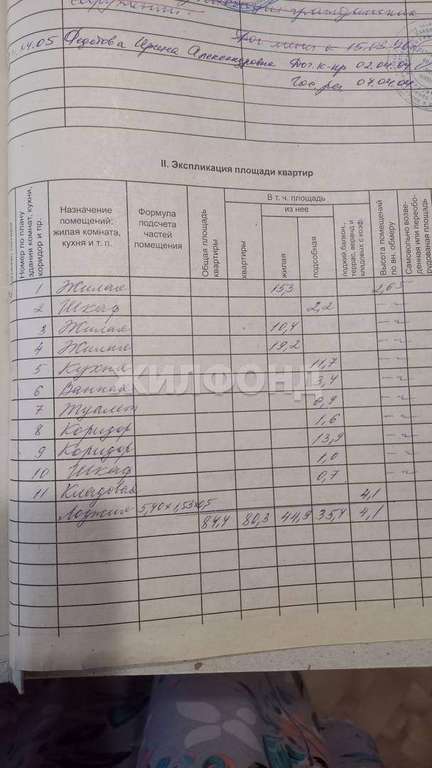 14.05 Федотова Ирина Александровна Дог. к-пр 02.04.04
Гос. рег 07.04.04
II. Экспликация площади квартир
Номер по плану здания комнат, кухни, коридор и пр.
Назначение помещений: жилая комната, кухня и т. п.
Формула подсчета частей помещения
Общая площадь квартиры
В т. ч. площадь
квартиры
из нее
жилая
подсобная
лоджий, балкон., террас, веранд и кладовых с коэф.
Высота помещений по вн. обмеру
Самовольно возведенная или переоборудованая площадь
1 Жилая 15,3 2,65
2 Шкаф 2,2 -"-
3 Жилая 10,4 -"-
4 Жилая 19,2 -"-
5 Кухня 11,7 -"-
6 Ванная 3,4 -"-
7 Туалет 0,9 -"-
8 Коридор 1,6 -"-
9 Коридор 13,9 -"-
10 Шкаф 1,0 -"-
11 Кладовая 0,7 -"-
Лоджия 5,40 х 1,53х0,5 4,1
84,4 80,3 44,9 35,4 4,1
ЖИЛФОНД